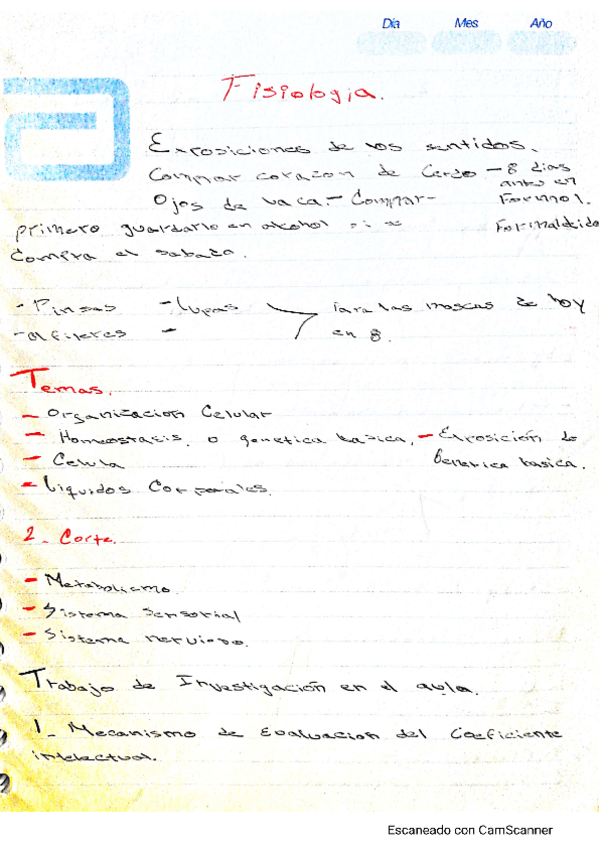 Día Mes Año
Fisiologia.
Exposiciones de los sentidos.
Comprar corazon de Cerdo - 8 dias
antes en
Ojos de vaca. - Comprar - Formol.
primero guardarlo en alcohol si se Formaldeido
Compra el sabado.
- Pinsas - Lupas Para las moscas de hoy
- alfileres - en 8.
Temas.
- Organisacion Celular
- Homeostasis, o genetica basica. - Exposición de
- Celula Genetica basica.
- Liquidos Corporales.
2. Corte.
- Metabolismo.
- Sistema Sensorial
- Sistema nervioso.
Trabajo de Investigación en el aula.
1- Mecanismo de Evaluacion del Coeficiente
intelectual.
Escaneado con CamScanner